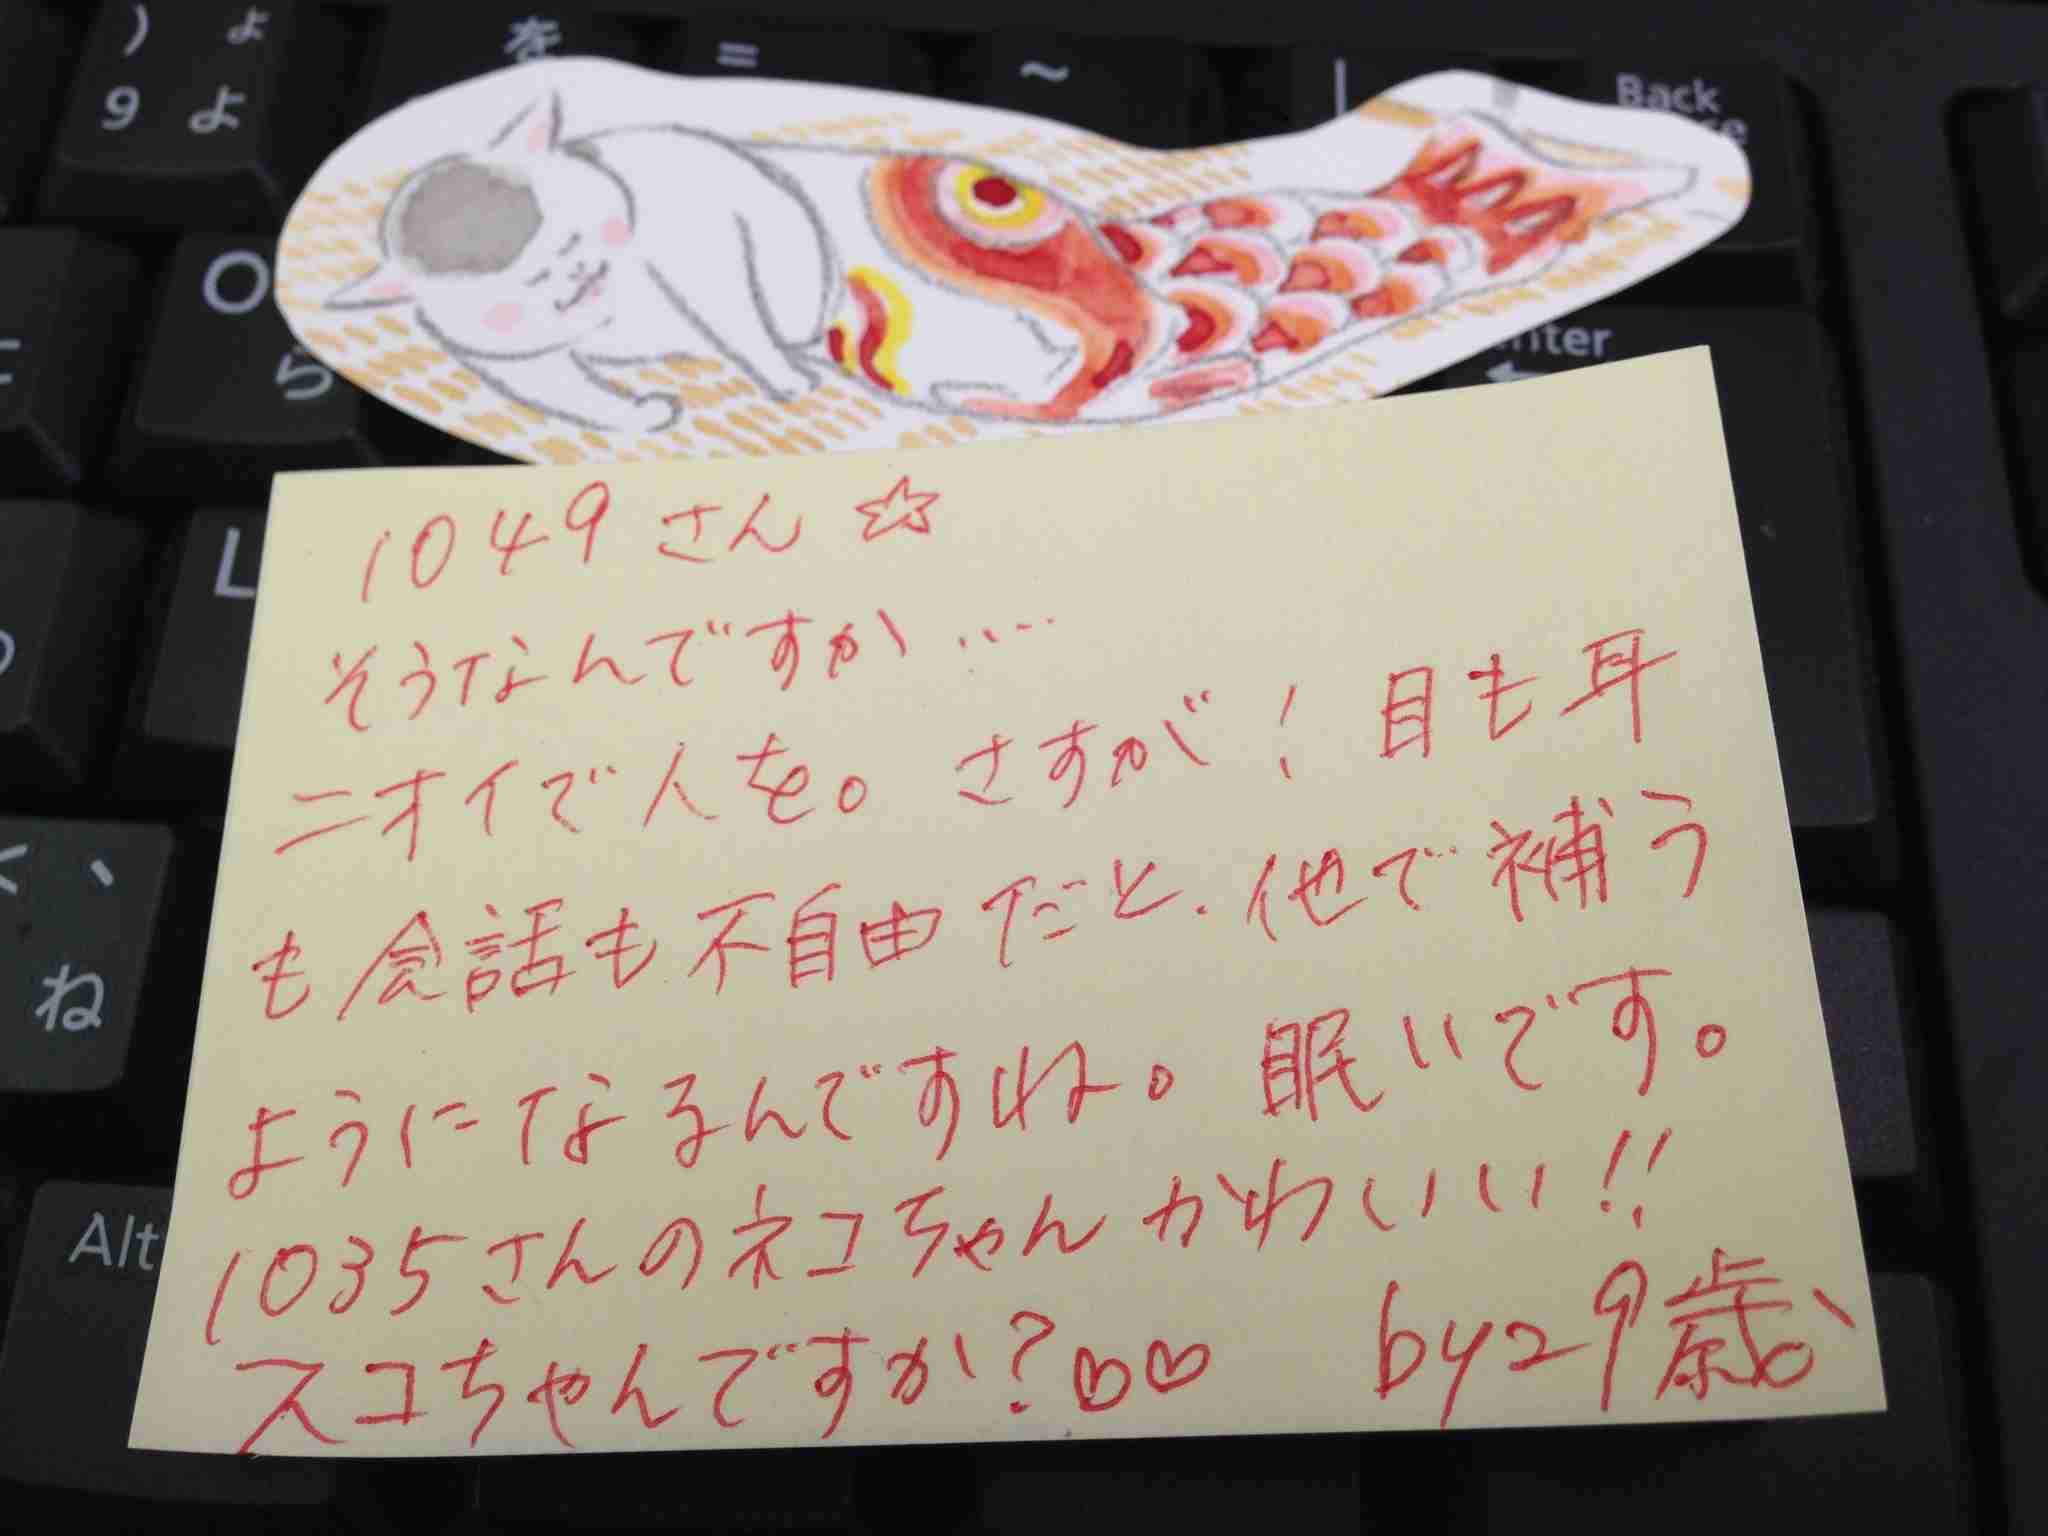 ) ょ
9 よ
を
=
~
|
Back
O
ら
nter
L
く 、
ね
Alt
1049さん☆
そうなんですか‥‥
ニオイで人を。さすが！目も耳
も会話も不自由だと、他で補う
ようになるんですね。眠いです。
1035さんのネコちゃんかわいい!!
スコちゃんですか？♡♡ by29歳